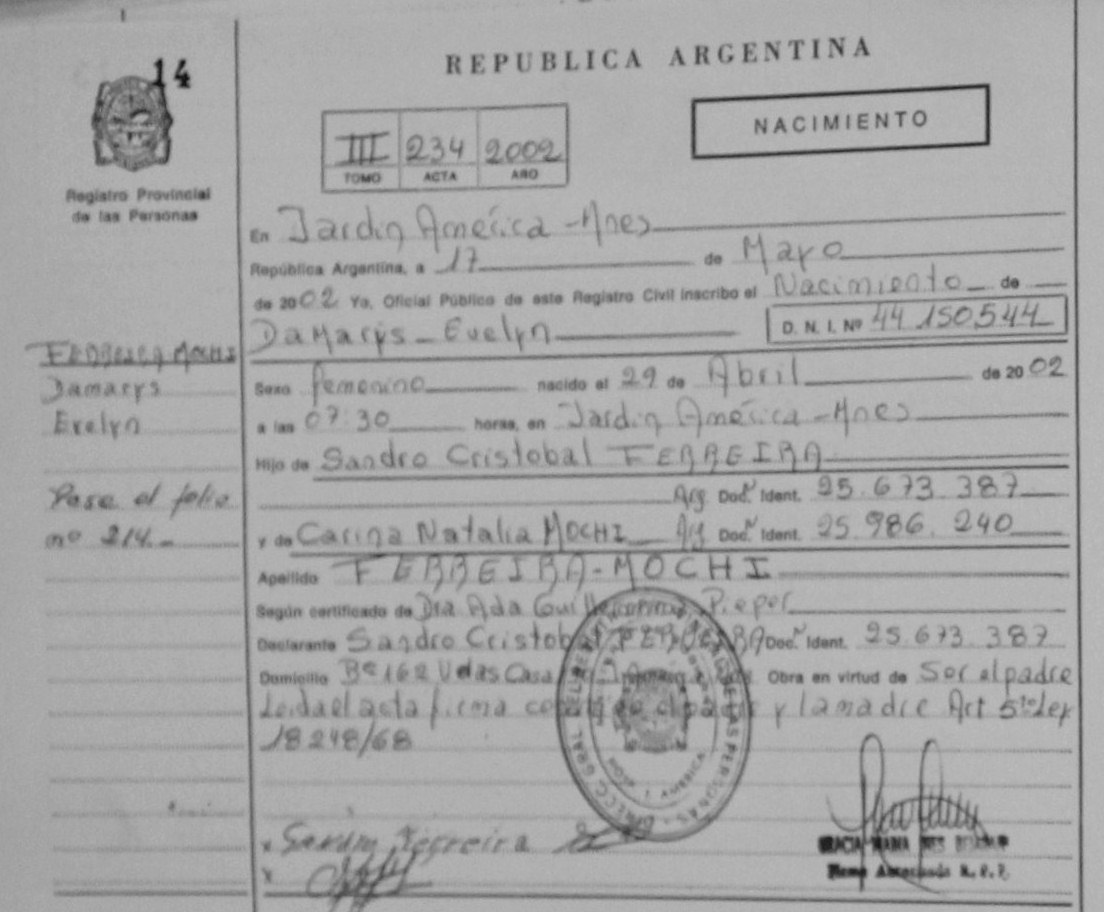 14
REPUBLICA ARGENTINA
NACIMIENTO
III 234 2002
TOMO ACTA AÑO
Registro Provincial
de las Personas
En Jardin América - Mnes
República Argentina, a 17 de Mayo
de 2002 Yo, Oficial Público de este Registro Civil inscribo el Nacimiento de
Damarys - Evelyn D. N. I. Nº 44.150.544
FERREIRA MOCHI
Damarys
Evelyn
Pase al folio
nº 214.-
Sexo femenino nacido el 29 de Abril de 2002
a las 07:30 horas, en Jardin América - Mnes
Hijo de Sandro Cristobal FERREIRA
Arg Doc. Ident. 25.673.387
y de Carina Natalia MOCHI Arg Doc. Ident. 25.986.240
Apellido FERREIRA-MOCHI
Según certificado de Dra Ada Guillermina Pieper
Declarante Sandro Cristobal FERREIRA Doc. Ident. 25.673.387
Domicilio Bº 162 Vdas Casa Obra en virtud de Ser el padre
Leida el acta firma el padre y la madre Art 5to Ley
18248/68
x Ferreira
x